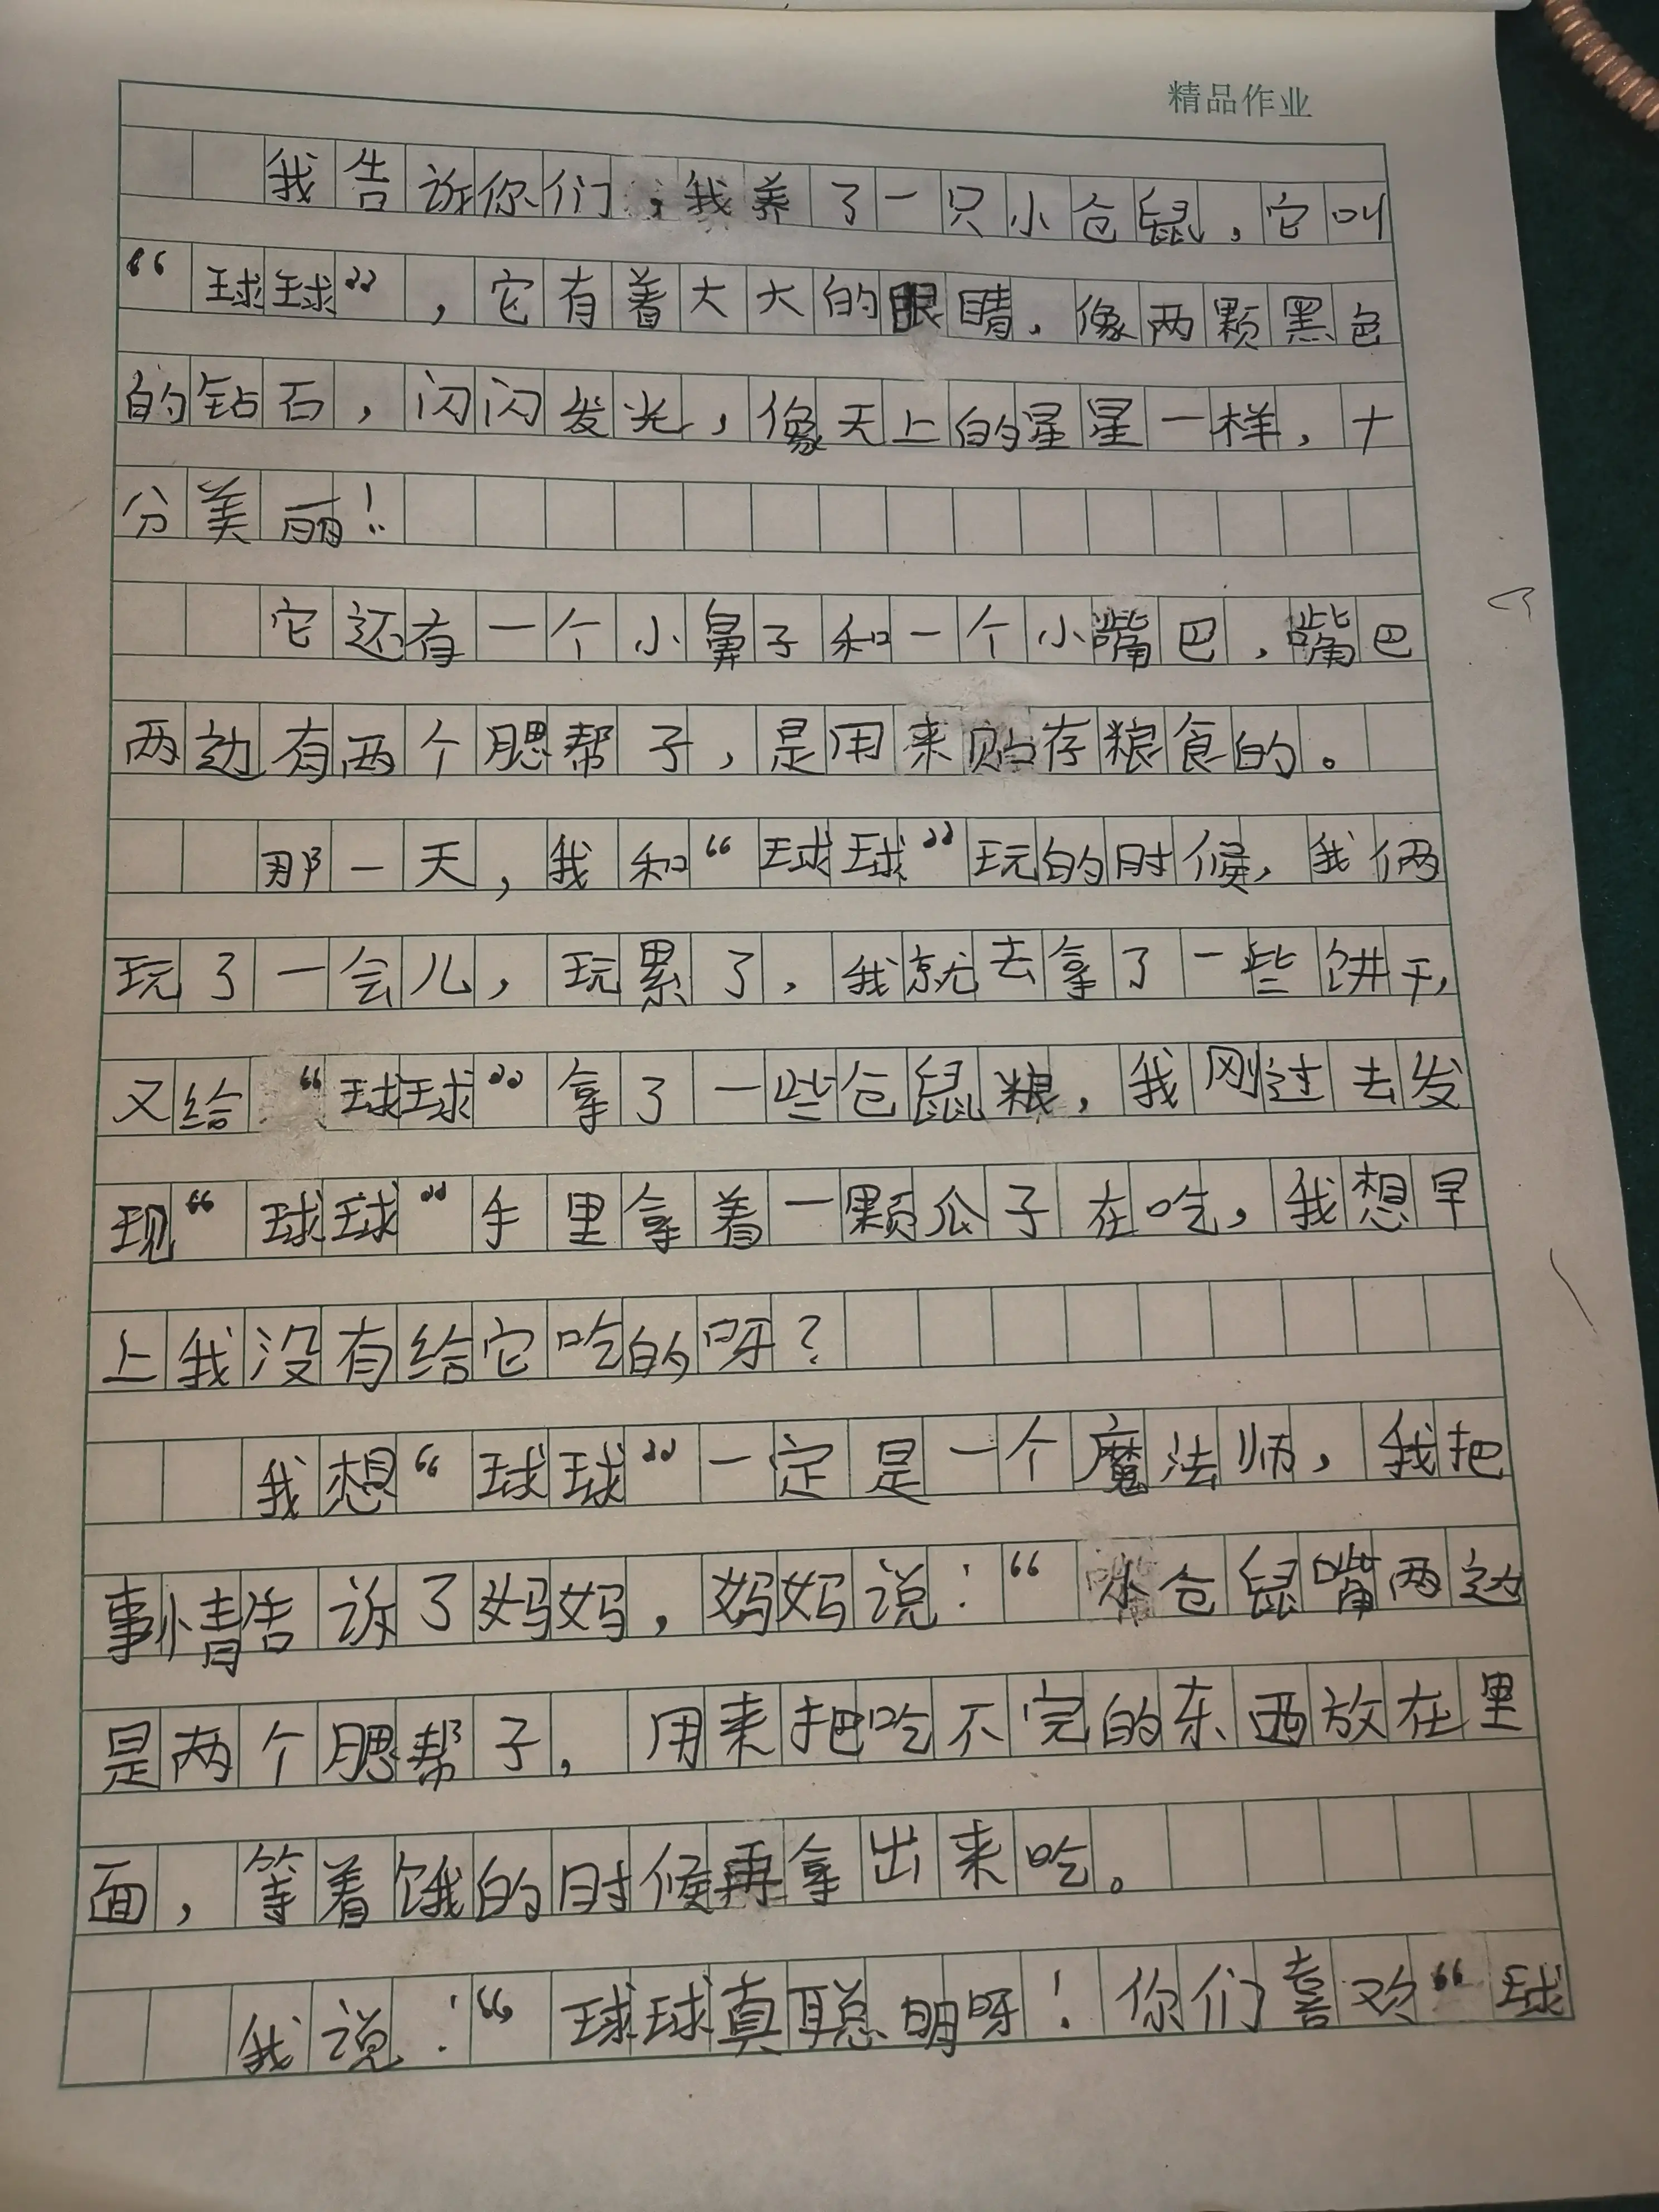 精品作业
我告诉你们,我养了一只小仓鼠,它叫
“球球”,它有着大大的眼睛,像两颗黑色
的钻石,闪闪发光,像天上的星星一样,十
分美丽!
它还有一个小鼻子和一个小嘴巴,嘴巴
两边有两个腮帮子,是用来贮存粮食的。
那一天,我和“球球”玩的时候,我俩
玩了一会儿,玩累了,我就去拿了一些饼干,
又给“球球”拿了一些仓鼠粮,我刚过去发
现“球球”手里拿着一颗瓜子在吃,我想早
上我没有给它吃的呀?
我想“球球”一定是一个魔法师,我把
事情告诉了妈妈,妈妈说:“小仓鼠嘴两边
是两个腮帮子,用来把吃不完的东西放在里
面,等着饿的时候再拿出来吃。
我说:“球球真聪明呀!你们喜欢“球